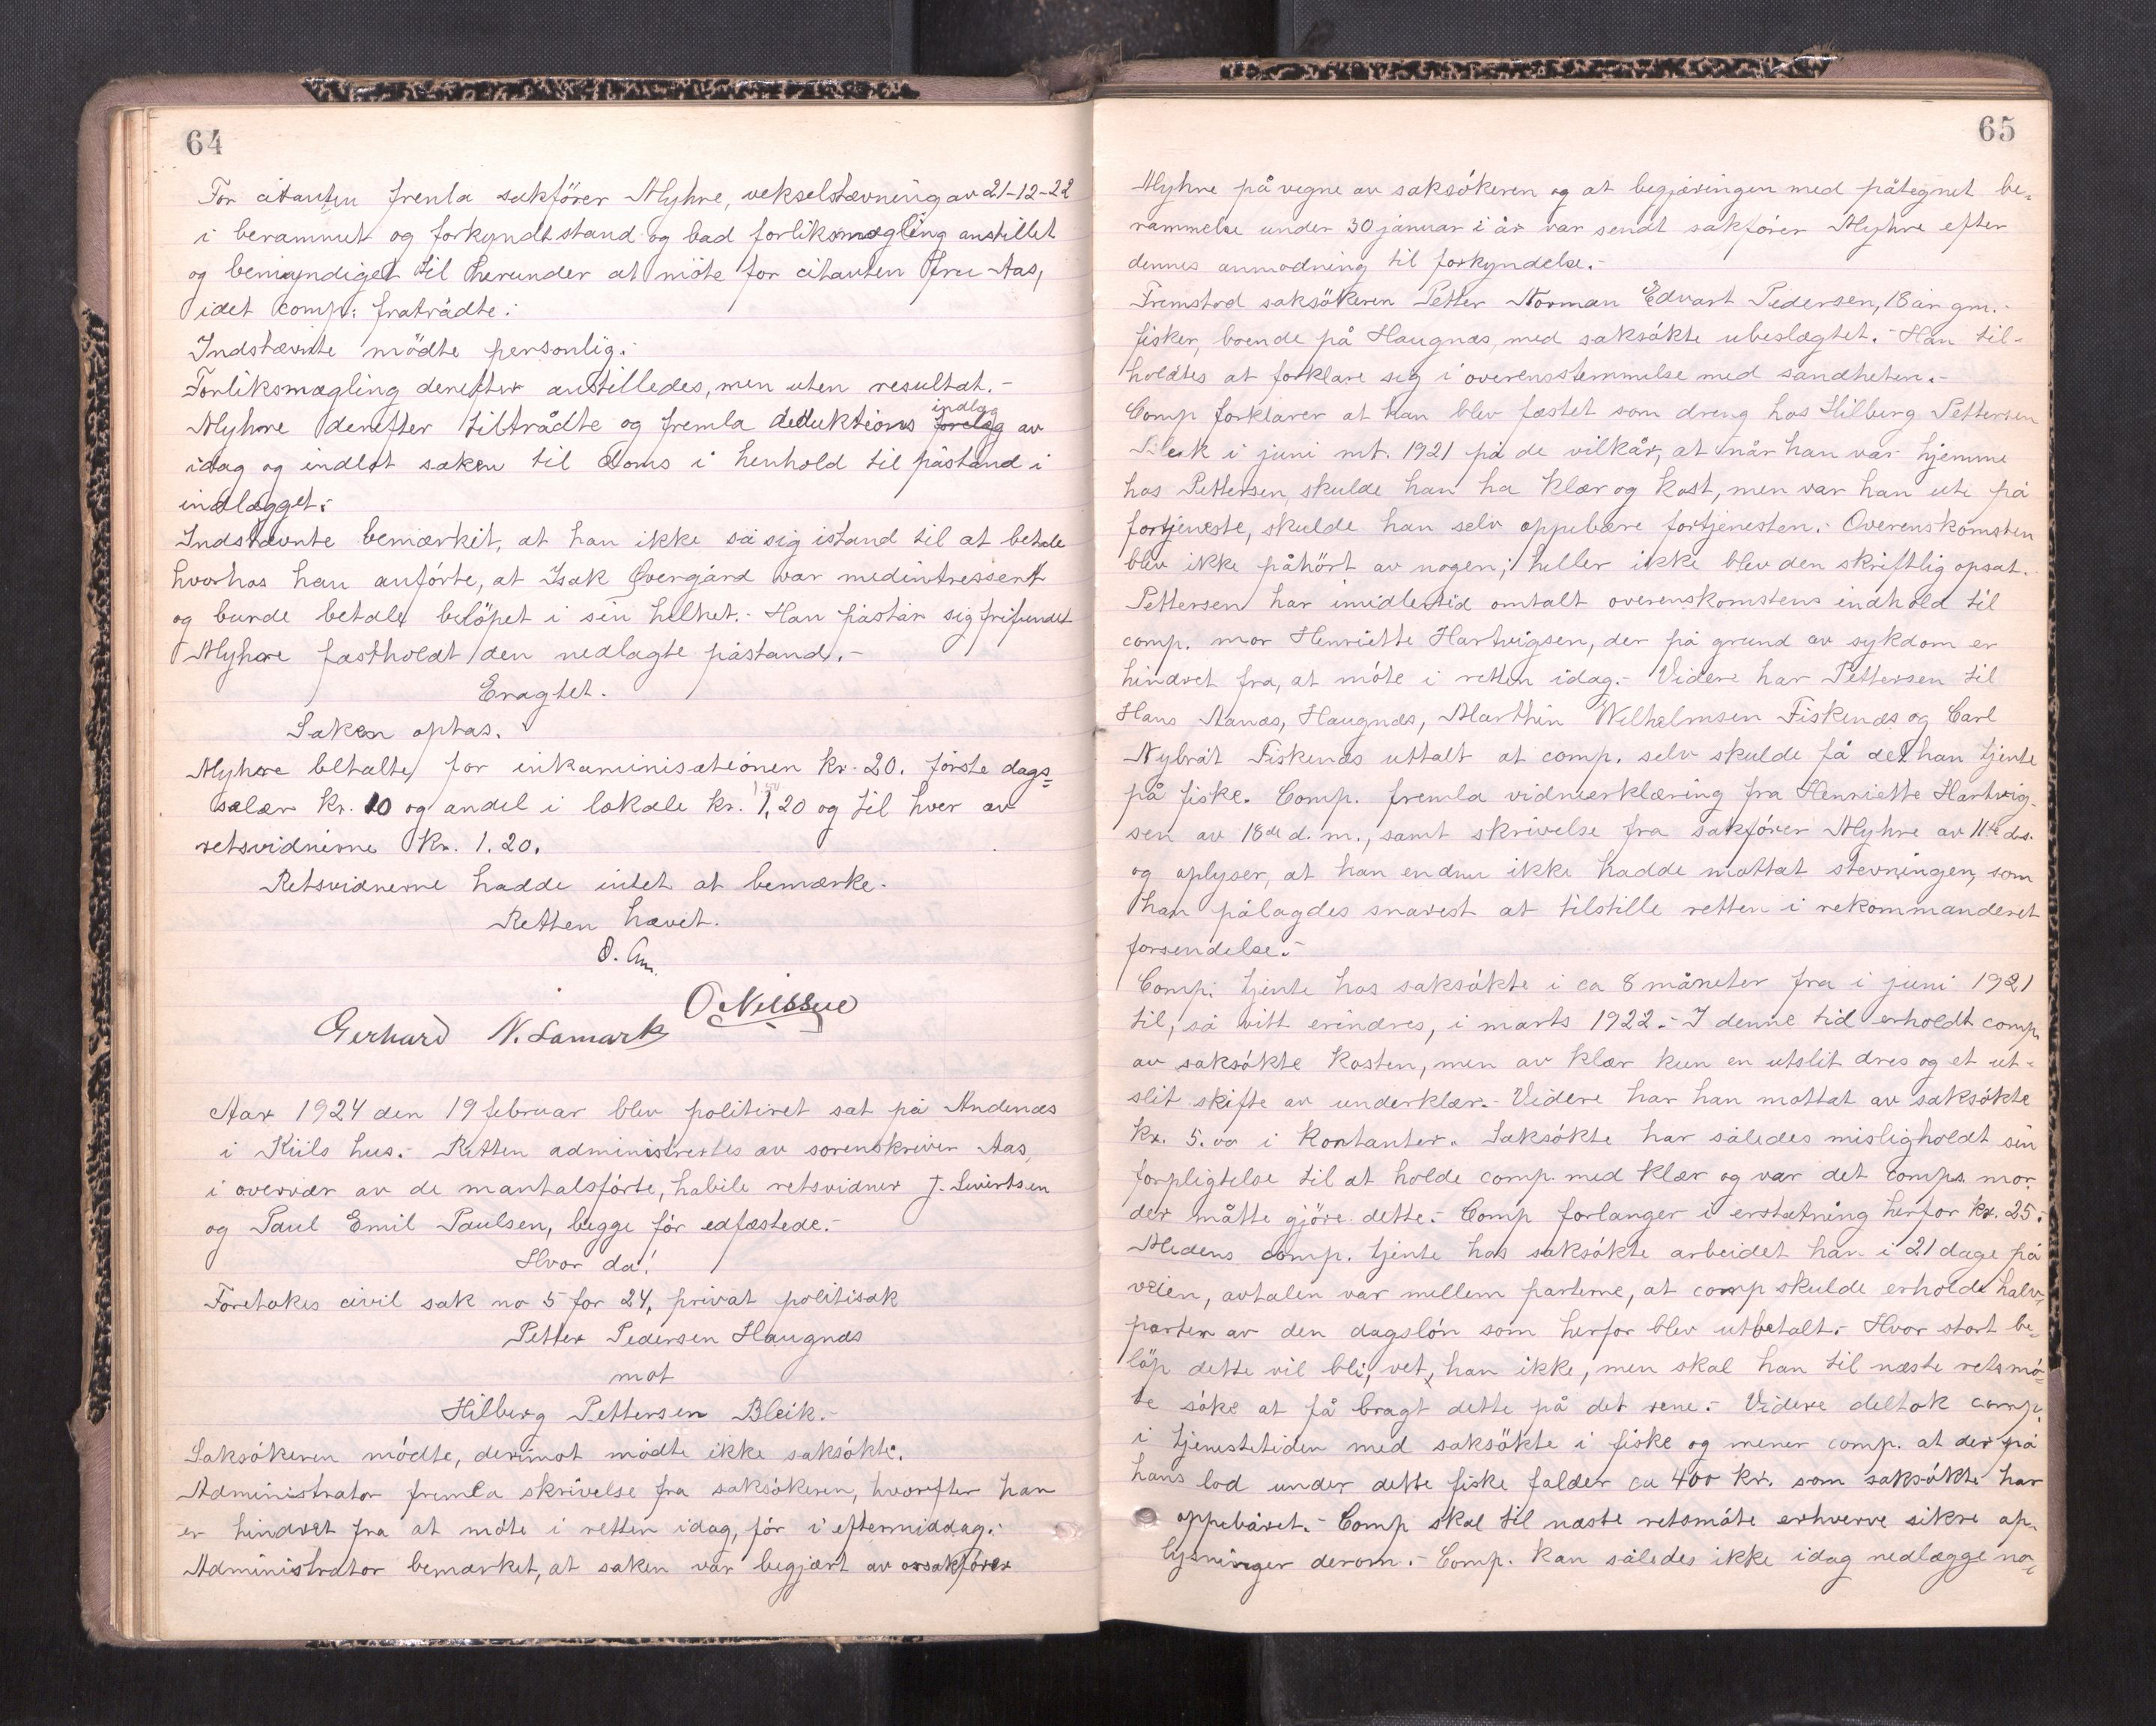 64
For citanten fremla sakförer Myhre, vekselstævning av 21-12-22
i berammet og forkyndt stand og bad forliksmægling anstillet
og bemyndiget til herunder at möte for citanten fru Aas,
idet comp: fratrådte:
Indstævnte mödte personlig.
Forliksmægling derefter anstilledes, men uten resultat.-
Myhre derefter tiltrådte og fremla deduktions indlæg av
idag og indlot saken til doms i henhold til påstand i
indlægget:
Indstævnte bemærket, at han ikke så sig istand til at betale
hvorhos han anförte, at Isak Övergård var medintressent
og burde betale belöpet i sin helhet.- Han påstår sig frifundet
Myhre fastholdt den nedlagte påstand.-
Eragtet.
Saken optas.
Myhre betalte for inkaminisationen kr. 20. förste dags=
salær kr. 10 og andel i lokale kr. 1,20 og til hver av
retsvidnerne kr. 1.20.
Retsvidnerne hadde intet at bemærke.
Retten hævet.
O. Aas
O Nilssen
Gerhard N. Lamark
Aar 1924 den 19 februar blev politiret sat på Andenæs
i Kiils hus.- Retten administrertes av sorenskriver Aas,
i overvær av de mantalsförte, habile retsvidner J. Sivertsen
og Paul Emil Paulsen, begge för edfæstede.-
Hvor da!
Foretokes civil sak no 5 for 24, privat politisak
Petter Pedersen Haugnæs
mot
Hilberg Pettersen Bleik.-
Saksökeren mödte, derimot mödte ikke saksökte.
Administrator fremla skrivelse fra saksökeren, hvorefter han
er hindret fra at möte i retten idag, för i eftermiddag.-
Administrator bemærket, at saken var begjært av orsakförer
65
Myhre på vegne av saksökeren og at begjæringen med påtegnet be=
rammelse under 30 januar i år var sendt sakförer Myhre efter
dennes anmodning til forkyndelse.-
Fremstod saksökeren Petter Norman Edvart Pedersen, 18 år gm.-
fisker, boende på Haugnæs, med saksökte ubeslægtet.- Han til-
holdtes at forklare sig i overensstemmelse med sandheten.-
Comp forklarer at han blev fæstet som dreng hos Hilberg Pettersen
Bleik i juni mt. 1921 på de vilkår, at når han var hjemme
hos Pettersen, skulde han ha klær og kost, men var han ute på
fortjeneste, skulde han selv oppebære fortjenesten.- Overenskomsten
blev ikke påhört av nogen; heller ikke blev den skriftlig opsat.
Pettersen har imidlertid omtalt overenskomstens indhold til
comp. mor Henriette Hartvigsen, der på grund av sykdom er
hindret fra, at möte i retten idag.- Videre har Pettersen til
Hans Aanæs, Haugnæs, Marthin Wilhelmsen Fiskenæs og Carl
Nybråt Fiskenæs uttalt at comp. selv skulde få det han tjente
på fiske. Comp. fremla vidneerklæring fra Henriette Hartvig-
sen av 18de d. m., samt skrivelse fra sakförer Myhre av 11te ds.
og oplyser, at han endnu ikke hadde mottat stevningen, som
han pålagdes snarest at tilstille retten i rekommanderet
forsendelse.-
Comp: tjente hos saksökte i ca 8 måneter fra i juni 1921
til, så vitt erindres, i marts 1922.- I denne tid erholdt comp.
av saksökte kosten, men av klær kun en utslit dres og et ut-
slit skifte av underklær.- Videre har han mottat av saksökte
kr. 5.00 i kontanter. Saksökte har således misligholdt sin
forpligtelse til at holde comp. med klær og var det comps. mor
der måtte gjöre dette.- Comp forlanger i erstatning herfor kr. 25.-
Medens comp. tjente hos saksökte arbeidet han i 21 dage på
veien, avtalen var mellem parterne, at comp skulde erholde halv-
parten av den daglön som herfor blev utbetalt.- Hvor stort be=
löp dette vil bli, vet, han ikke, men skal han til næste retsmö=
te söke at få bragt dette på det rene.- Videre deltok comp.
i tjenestetiden med saksökte i fiske og mener comp. at der på
hans lod under dette fiske falder ca 400 kr. som saksökte har
oppebåret.- Comp skal til næste retsmöte erhverve sikre op-
lysninger derom.- Comp. kan således ikke idag nedlægge no-